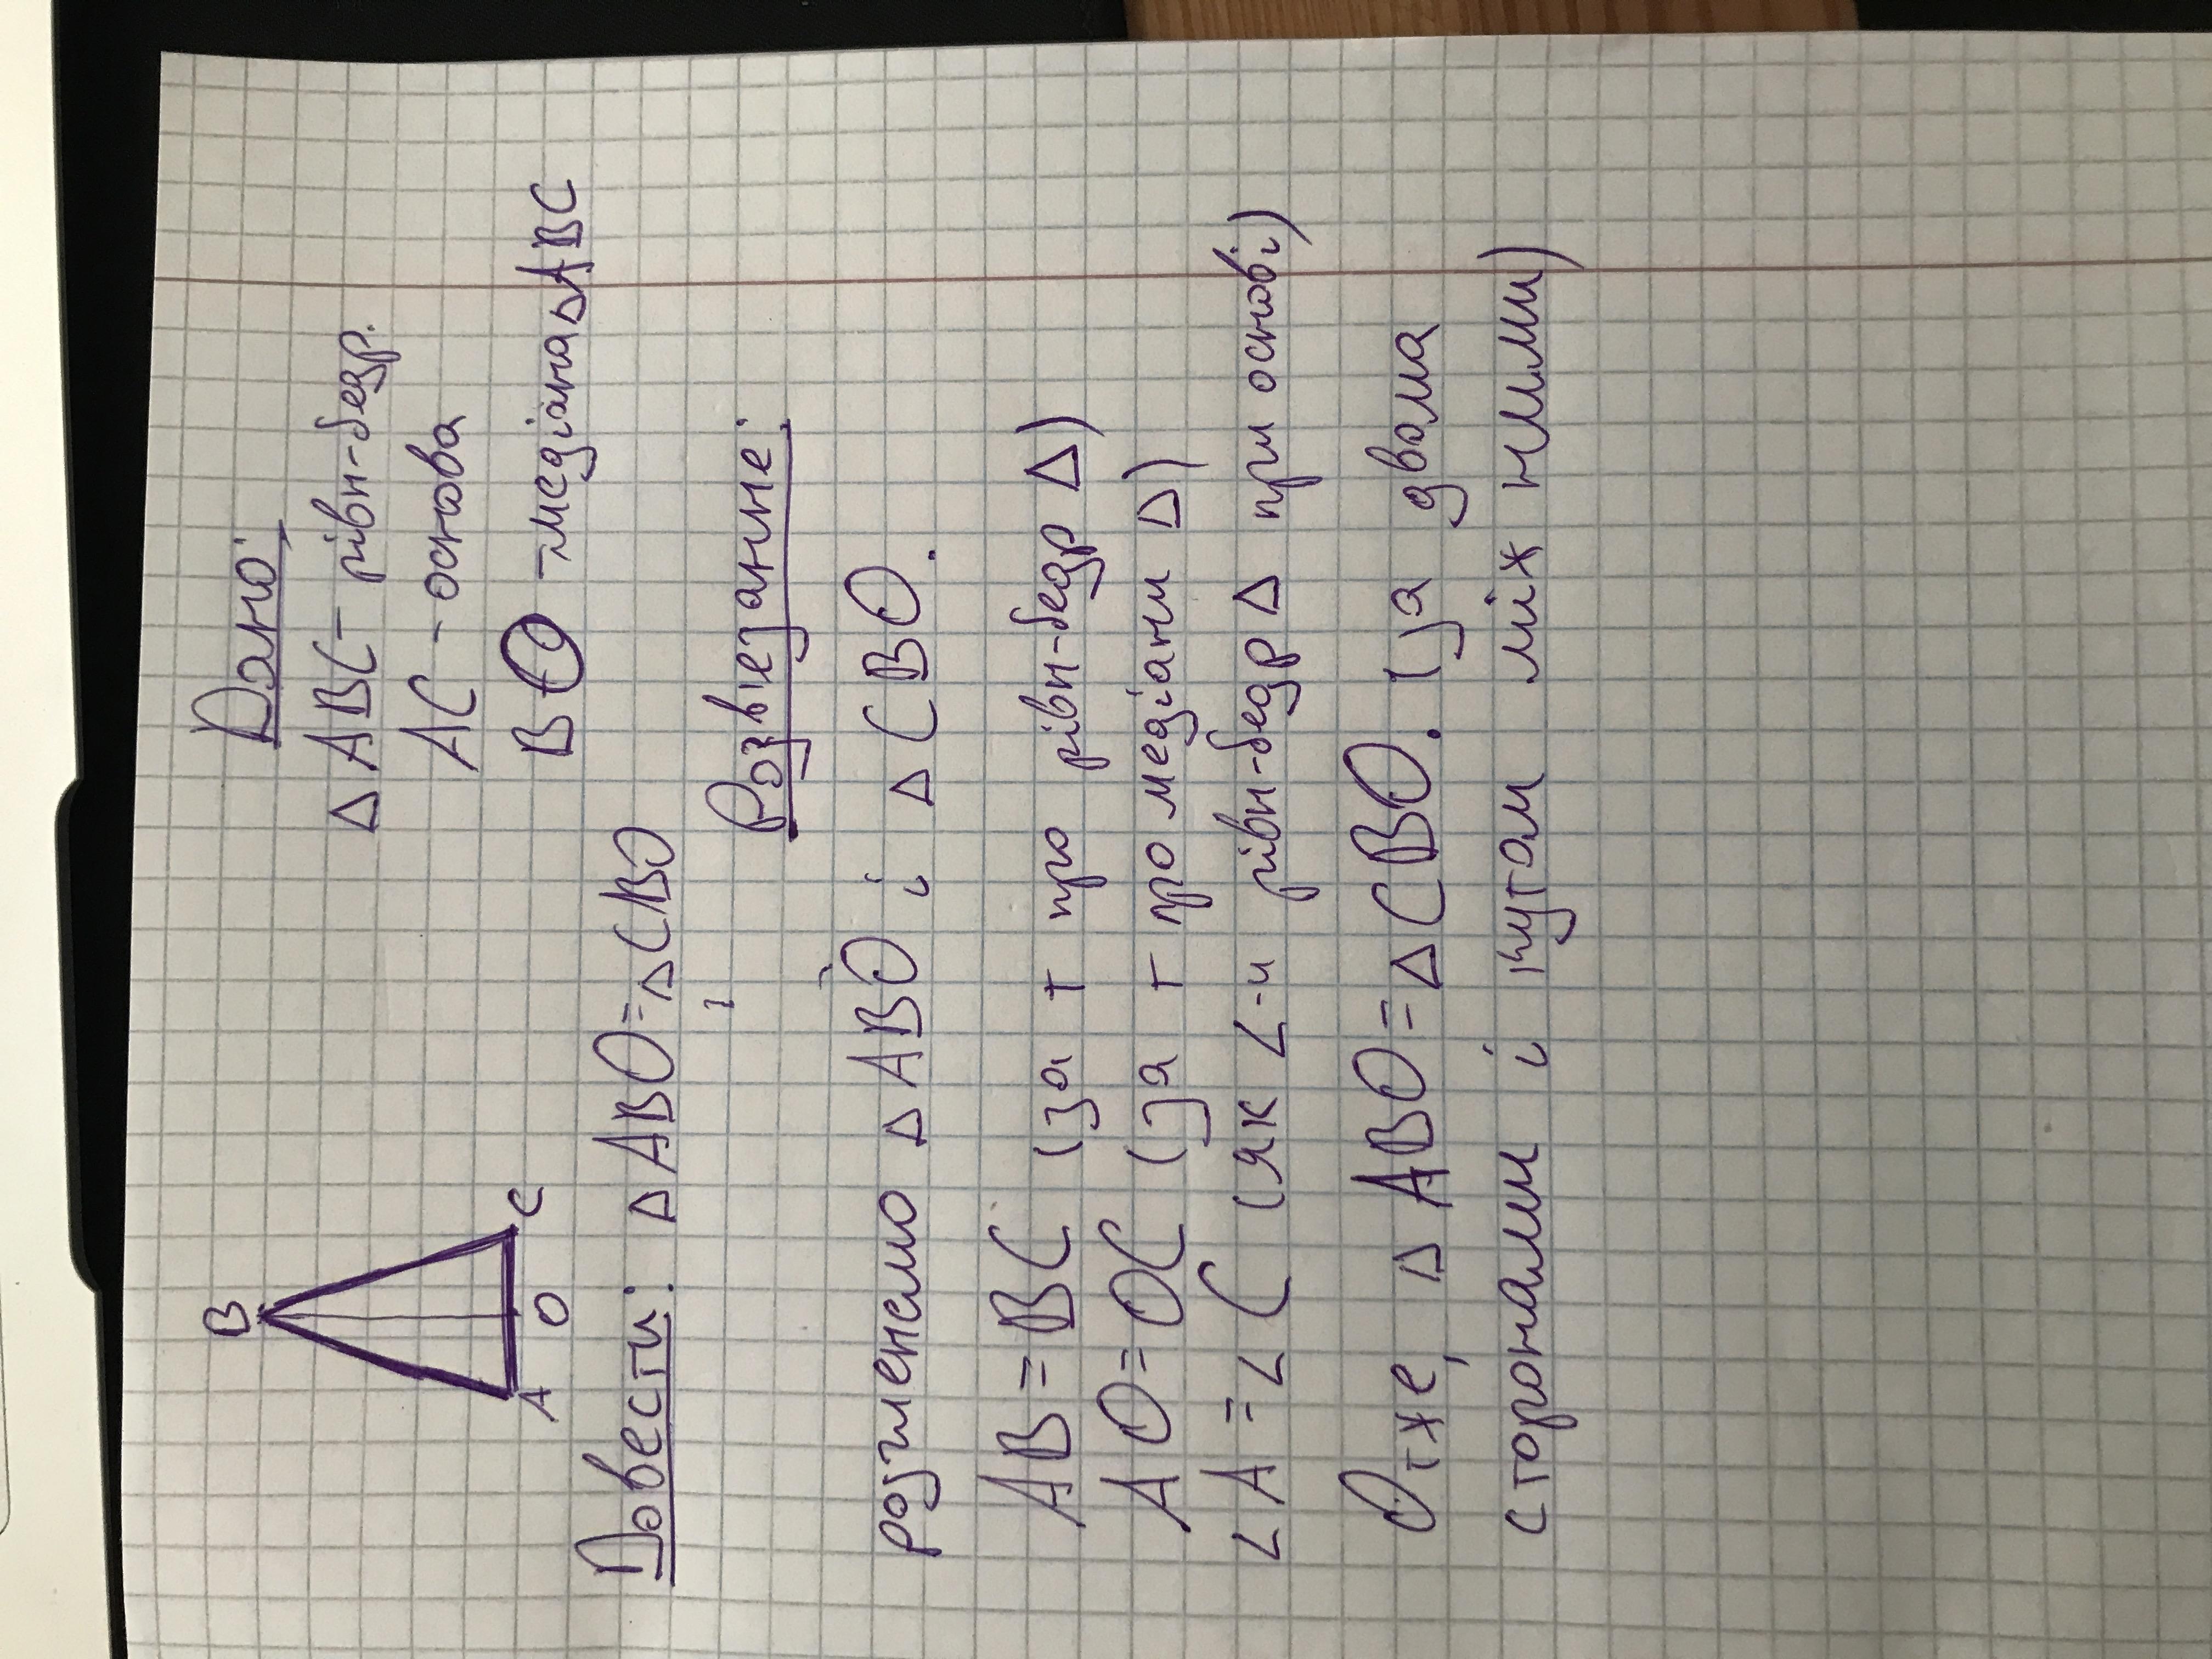 B
A O C
Дано:
△ ABC – рівн-бедр.
AC – основа
BO – медіана △ABC
Довести: △ ABO = △CBO
Розвʼезанне:
розгленемо △ ABO і △ CBO.
AB = BC (за т про рівн-бедр △)
AO = OC (за т про медіани △)
∠A = ∠C (як ∠-и рівн-бедр △ при основі)
Отже, △ ABO = △CBO. (за двома
сторонами і кутом між ними)